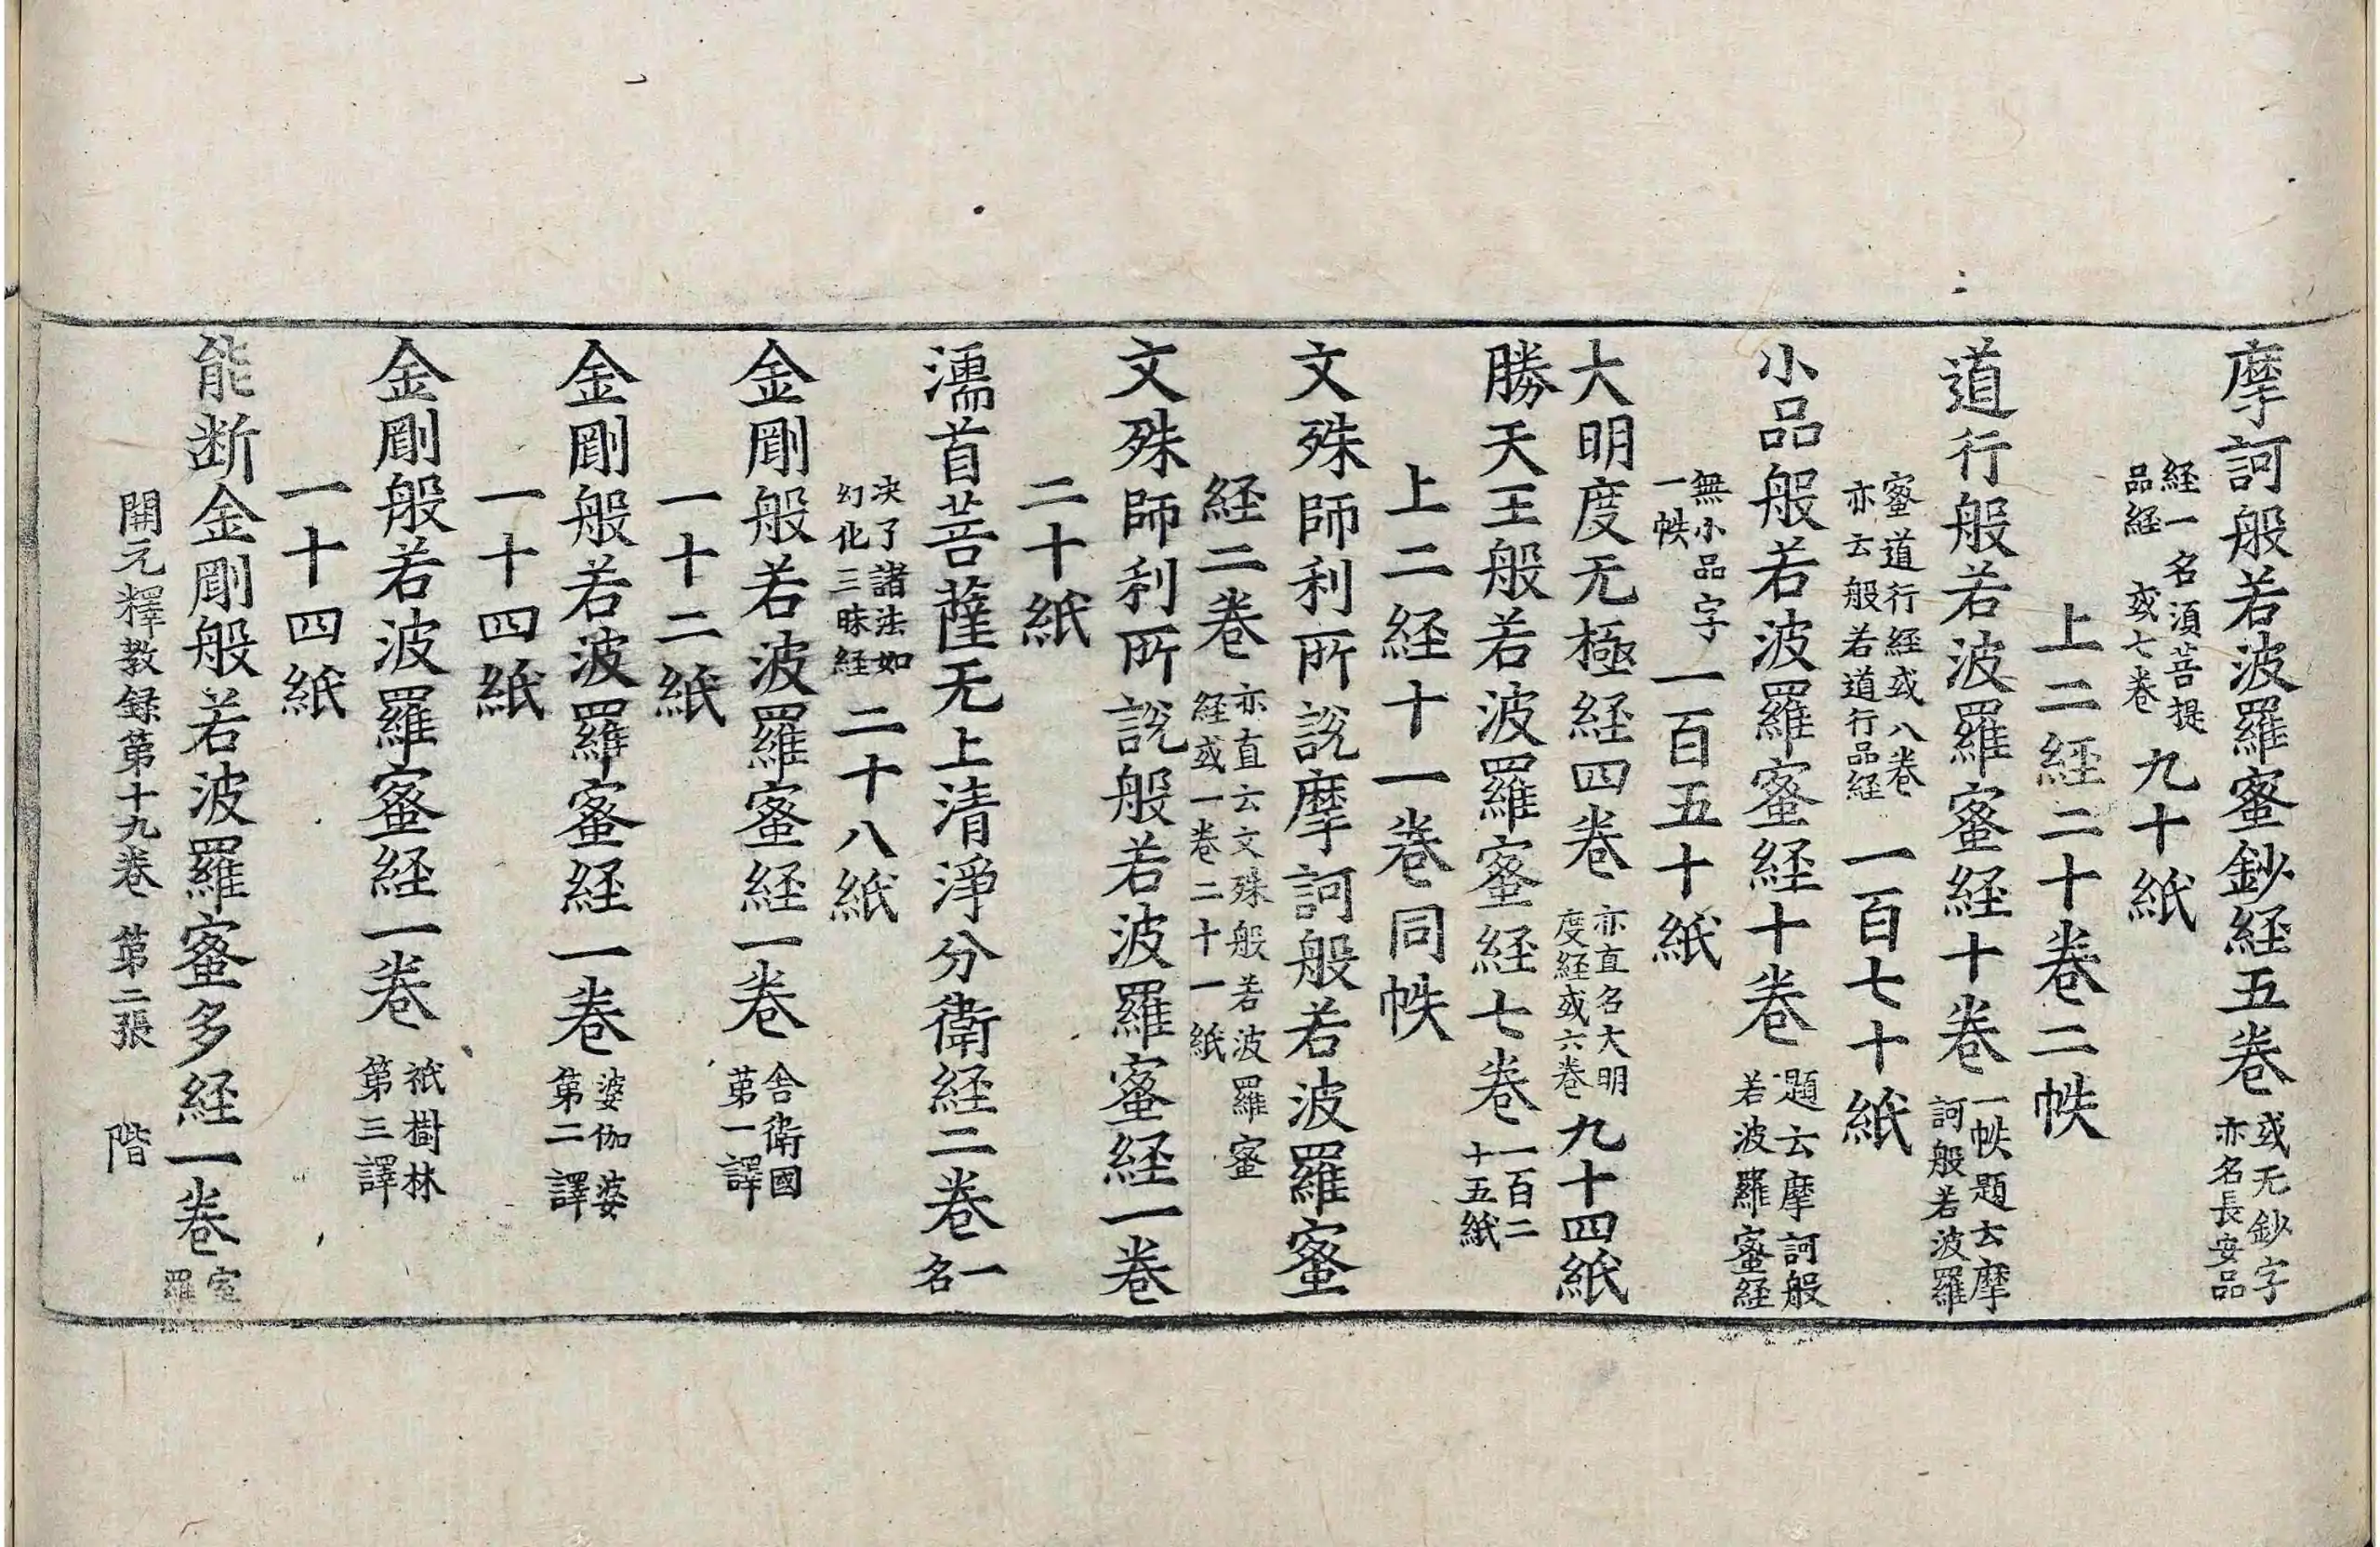 摩訶般若波羅蜜鈔経五巻 或无鈔字 亦名長安品
経一名須菩提 品経 或七巻 九十紙
上二経二十巻二帙
道行般若波羅蜜経十巻 一帙題云摩 訶般若波羅
蜜道行経或八巻 亦云般若道行品経 一百七十紙
小品般若波羅蜜経十巻 題云摩訶般 若波羅蜜経
無小品字 一帙 一百五十紙
大明度无極経四巻 亦直名大明 度経或六巻 九十四紙
勝天王般若波羅蜜経七巻 一百二 十五紙
上二経十一巻同帙
文殊師利所説摩訶般若波羅蜜
経二巻 亦直云文殊般若波羅蜜 経或一巻二十一紙
文殊師利所説般若波羅蜜経一巻
二十紙
濡首菩薩无上清淨分衛経二巻 一 名
决了諸法如 幻化三昧経 二十八紙
金剛般若波羅蜜経一巻 舎衛國 第一譯
一十二紙
金剛般若波羅蜜経一巻 婆伽婆 第二譯
一十四紙
金剛般若波羅蜜経一巻 祇樹林 第三譯
一十四紙
能断金剛般若波羅蜜多経一巻 室 羅
開元釋教録第十九巻 第二張 階